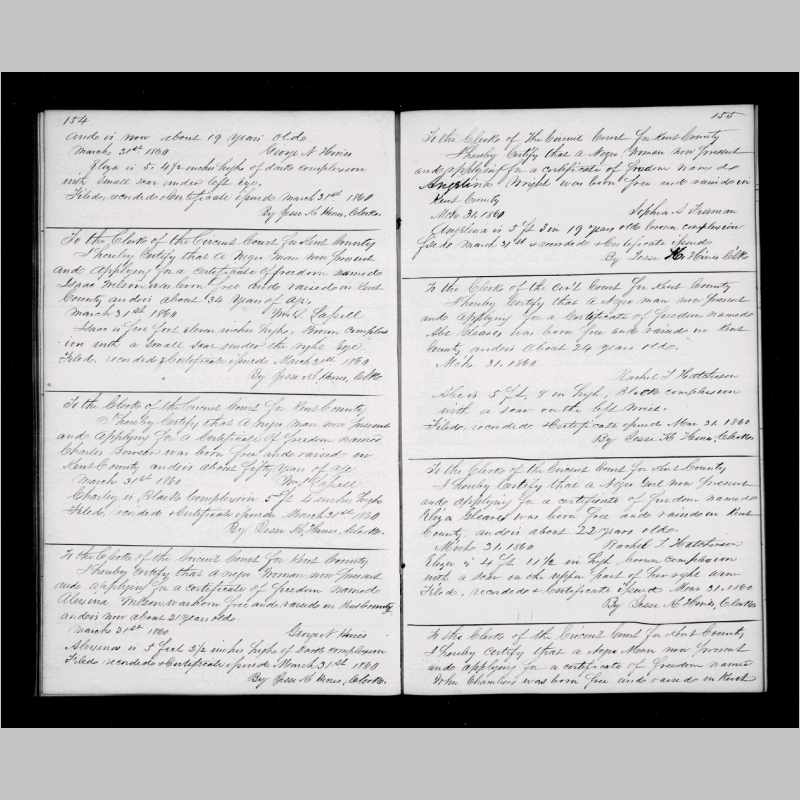 154
and is now about 19 years old
March 31st 1860 George N Hines
Eliza is 5. 4 1/2 inches high of dark complexion
with small scar under left eye,
Filed, recorded & Certificate issued March 31st 1860
By Jesse K Hines, Clerk.
To the Clerk of the Circuit Court for Kent County
I hereby Certify that A Negro Man now present
and Applying for a Certificate of freedom named
Isaac Wilson was born free and raised in Kent
County and is about 34 Years of Age.
March 31st 1860 Wm
Isaac is five feet eleven inches high, Brown Complex
ion with a small scar under the right Eye,
Filed, recorded & Certificate issued March 31st 1860
By Jesse K Hines, Clk
To the Clerk of the Circuit Court for Kent County,
I hereby Certify that A Negro man now present
and applying for a Certificate of freedom named
Charles was born free and raised in
Kent County and is about fifty Years of Age
March 31st 1860 Wm
Charles is Black Complexion 5 ft inches high
Filed, recorded & Certificate issued March 31st 1860
By Jesse K, Hines, Clerk.
To the Clerk of the Circuit Court for Kent County
I hereby Certify that a Negro Woman now present
and applying for a Certificate of freedom named
Wilson was born free and raised in Kent County
and is now about 21 years old
March 31st 1860 George N Hines
is 5 feet 3 1/2 inches high of Dark complexion
Filed recorded & Certificate issued March 31st 1860
By Jesse K Hines, Clerk.
155
To the Clerk of the Circuit Court for Kent County
I hereby Certify that a Negro Woman now present
and applying for a certificate of freedom named
Angelina Wright was born free and raised in
Kent County
Mch 31. 1860 Sophia S Freeman
Angelina is 5 ft 3 in 19 years old brown complexion
filed March 31st & recorded & Certificate issued
By Jesse K. Hines Clk
To the Clerk of the Circuit Court for Kent County
I hereby Certify that A Negro man now present
and Applying for a Certificate of freedom named
Abe Gleaves was born free and raised in Kent
County and is about 24 years old.
Mch 31. 1860
Rachel T Hutchison
She is 5 ft, 8 in high, Black complexion
with a scar on the left
Filed, recorded & Certificate issued Mar 31 1860
By Jesse K Hines, Clerk
To the Clerk of the Circuit Court for Kent County
I hereby Certify that a Negro Girl now present
and applying for a certificate of freedom named
Eliza Gleaves was born free and raised in Kent
County and is about 22 years old.
Mch 31. 1860 Rachel T Hutchison
Eliza is 4 ft 11 1/2 in high, brown complexion
with a scar on the upper part of her right arm
Filed, recorded & Certificate issued Mar 31. 1860
By Jesse K Hines, Clerk
To the Clerk of the Circuit Court for Kent County
I hereby certify that a Negro Man now present
and applying for a certificate of freedom named
John Chambers was born free and raised in Kent